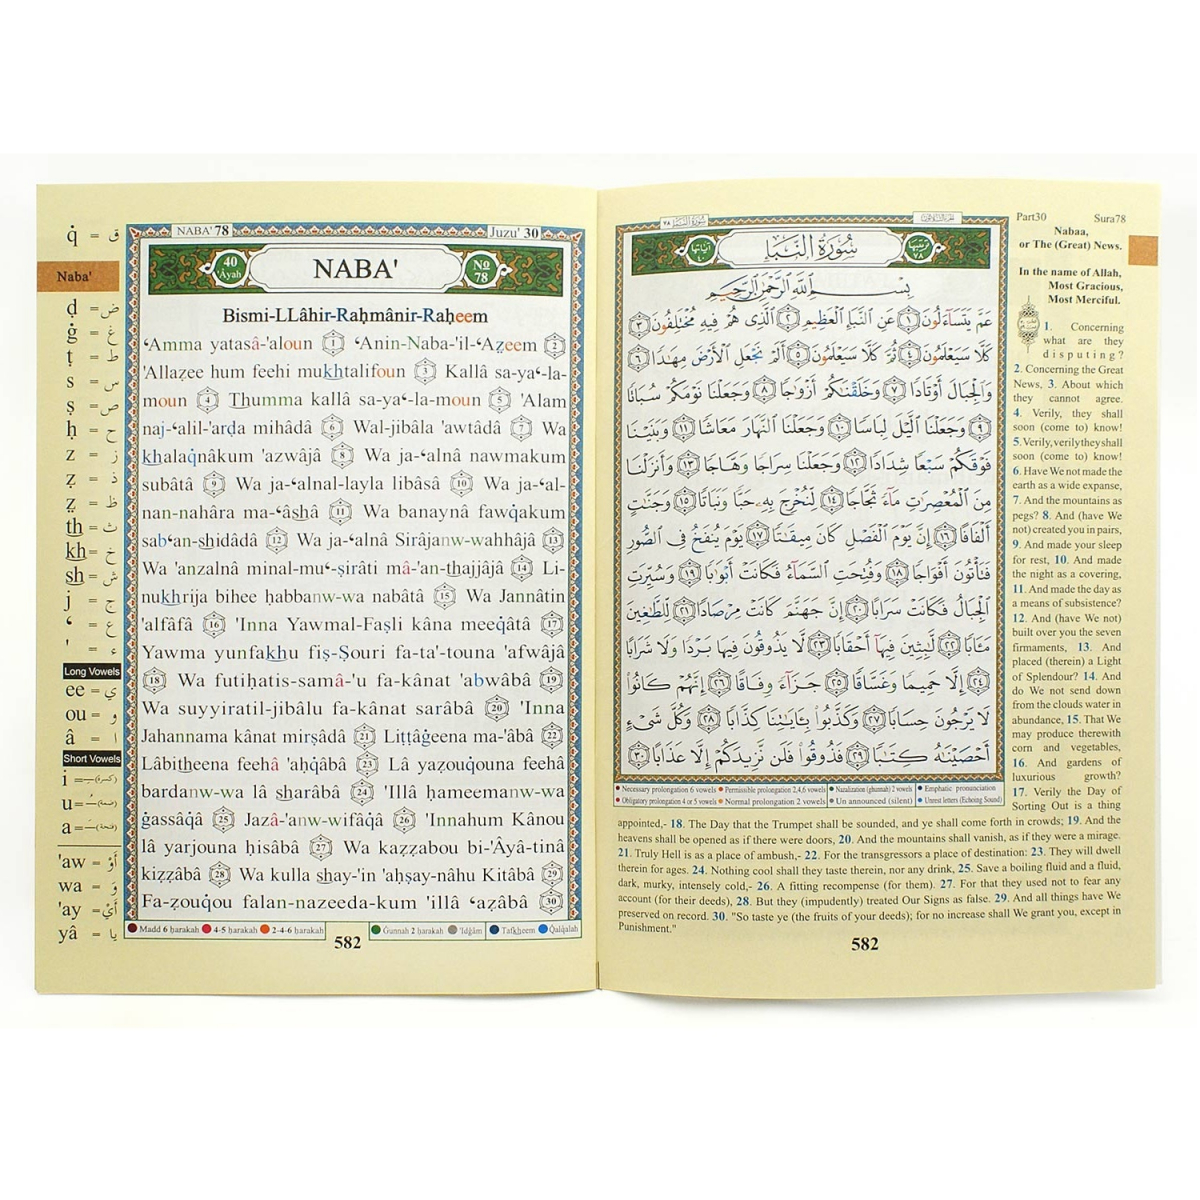 q̇ = ق
Naba'
ḍ = ض
ġ = غ
ṭ = ط
s = س
ṣ = ص
ḥ = ح
z = ز
ẕ = ذ
ẓ = ظ
th = ث
kh = خ
sh = ش
j = ج
‘ = ع
' = ء
Long Vowels
ee = ي
ou = و
â = ا
Short Vowels
i = (كسرة)
u = (ضمة)
a = (فتحة)
'aw = أَوْ
wa = وَ
'ay = أَيْ
yâ = يا
NABA' 78
Juzu' 30
40 'Âyah
NABA'
No 78
Bismi-LLâhir-Raḥmânir-Raḥeem
‘Amma yatasâ-'aloun 1 ‘Anin-Naba-'il-‘Aẓeem 2
'Allaẕee hum feehi mukhtalifoun 3 Kallâ sa-ya‘-la-
moun 4 Thumma kallâ sa-ya‘-la-moun 5 'Alam
naj-‘alil-'arḍa mihâdâ 6 Wal-jibâla 'awtâdâ 7 Wa
khalaq̇nâkum 'azwâjâ 8 Wa ja-‘alnâ nawmakum
subâtâ 9 Wa ja-‘alnal-layla libâsâ 10 Wa ja-‘al-
nan-nahâra ma-‘âshâ 11 Wa banaynâ fawq̇akum
sab‘an-shidâdâ 12 Wa ja-‘alnâ Sirâjanw-wahhâjâ 13
Wa 'anzalnâ minal-mu‘-ṣirâti mâ-'an-thajjâjâ 14 Li-
nukhrija bihee ḥabbanw-wa nabâtâ 15 Wa Jannâtin
'alfâfâ 16 'Inna Yawmal-Faṣli kâna meeq̇âtâ 17
Yawma yunfakhu fiṣ-Ṣouri fa-ta'-touna 'afwâjâ
18 Wa futiḥatis-samâ-'u fa-kânat 'abwâbâ 19
Wa suyyiratil-jibâlu fa-kânat sarâbâ 20 'Inna
Jahannama kânat mirṣâdâ 21 Liṭṭâġeena ma-'âbâ 22
Lâbitheena feehâ 'aḥq̇âbâ 23 Lâ yaẕouq̇ouna feehâ
bardanw-wa lâ sharâbâ 24 'Illâ ḥameemanw-wa
ġassâq̇â 25 Jazâ-'anw-wifâq̇â 26 'Innahum Kânou
lâ yarjouna ḥisâbâ 27 Wa kaẕẕabou bi-'Âyâ-tinâ
kiẕẕâbâ 28 Wa kulla shay-'in 'aḥṣay-nâhu Kitâbâ 29
Fa-ẕouq̇ou falan-nazeeda-kum 'illâ ‘aẕâbâ 30
Madd 6 ḥarakah 4-5 ḥarakah 2-4-6 ḥarakah Ġunnah 2 ḥarakah 'Idġâm Tafkheem Q̇alq̇alah
582
سُورَةُ النَّبَإِ ٧٨
الجزء الثلاثون
ترتيبها ٧٨
سُورَةُ النَّبَإِ
آياتها ٤٠
بِسْمِ اللَّهِ الرَّحْمَٰنِ الرَّحِيمِ
عَمَّ يَتَسَآءَلُونَ ١ عَنِ النَّبَإِ الْعَظِيمِ ٢ الَّذِى هُمْ فِيهِ مُخْتَلِفُونَ ٣
كَلَّا سَيَعْلَمُونَ ٤ ثُمَّ كَلَّا سَيَعْلَمُونَ ٥ أَلَمْ نَجْعَلِ الْأَرْضَ مِهَٰدًا ٦
وَالْجِبَالَ أَوْتَادًا ٧ وَخَلَقْنَٰكُمْ أَزْوَٰجًا ٨ وَجَعَلْنَا نَوْمَكُمْ سُبَاتًا
٩ وَجَعَلْنَا الَّيْلَ لِبَاسًا ١٠ وَجَعَلْنَا النَّهَارَ مَعَاشًا ١١ وَبَنَيْنَا
فَوْقَكُمْ سَبْعًا شِدَادًا ١٢ وَجَعَلْنَا سِرَاجًا وَهَّاجًا ١٣ وَأَنزَلْنَا
مِنَ الْمُعْصِرَٰتِ مَآءً ثَجَّاجًا ١٤ لِّنُخْرِجَ بِهِۦ حَبًّا وَنَبَاتًا ١٥ وَجَنَّٰتٍ
أَلْفَافًا ١٦ إِنَّ يَوْمَ الْفَصْلِ كَانَ مِيقَٰتًا ١٧ يَوْمَ يُنفَخُ فِى الصُّورِ
فَتَأْتُونَ أَفْوَاجًا ١٨ وَفُتِحَتِ السَّمَآءُ فَكَانَتْ أَبْوَٰبًا ١٩ وَسُيِّرَتِ
الْجِبَالُ فَكَانَتْ سَرَابًا ٢٠ إِنَّ جَهَنَّمَ كَانَتْ مِرْصَادًا ٢١ لِّلطَّٰغِينَ
مَـَٔابًا ٢٢ لَّٰبِثِينَ فِيهَآ أَحْقَابًا ٢٣ لَّا يَذُوقُونَ فِيهَا بَرْدًا وَلَا شَرَابًا
٢٤ إِلَّا حَمِيمًا وَغَسَّاقًا ٢٥ جَزَآءً وِفَاقًا ٢٦ إِنَّهُمْ كَانُوا
لَا يَرْجُونَ حِسَابًا ٢٧ وَكَذَّبُوا بِـَٔايَٰتِنَا كِذَّابًا ٢٨ وَكُلَّ شَىْءٍ
أَحْصَيْنَٰهُ كِتَٰبًا ٢٩ فَذُوقُوا فَلَن نَّزِيدَكُمْ إِلَّا عَذَابًا ٣٠
Necessary prolongation 6 vowels Permissible prolongation 2,4,6 vowels Nazalization (ghunnah) 2 vowels Emphatic pronunciation
Obligatory prolongation 4 or 5 vowels Normal prolongation 2 vowels Un announced (silent) Unrest letters (Echoing Sound)
Part30 Sura78
Nabaa,
or The (Great) News.
In the name of Allah,
Most Gracious,
Most Merciful.
1. Concerning
what are they
disputing?
2. Concerning the Great
News, 3. About which
they cannot agree.
4. Verily, they shall
soon (come to) know!
5. Verily, verily they shall
soon (come to) know!
6. Have We not made the
earth as a wide expanse,
7. And the mountains as
pegs? 8. And (have We
not) created you in pairs,
9. And made your sleep
for rest, 10. And made
the night as a covering,
11. And made the day as
a means of subsistence?
12. And (have We not)
built over you the seven
firmaments, 13. And
placed (therein) a Light
of Splendour? 14. And
do We not send down
from the clouds water in
abundance, 15. That We
may produce therewith
corn and vegetables,
16. And gardens of
luxurious growth?
17. Verily the Day of
Sorting Out is a thing
appointed,- 18. The Day that the Trumpet shall be sounded, and ye shall come forth in crowds; 19. And the
heavens shall be opened as if there were doors, 20. And the mountains shall vanish, as if they were a mirage.
21. Truly Hell is as a place of ambush,- 22. For the transgressors a place of destination: 23. They will dwell
therein for ages. 24. Nothing cool shall they taste therein, nor any drink, 25. Save a boiling fluid and a fluid,
dark, murky, intensely cold,- 26. A fitting recompense (for them). 27. For that they used not to fear any
account (for their deeds), 28. But they (impudently) treated Our Signs as false. 29. And all things have We
preserved on record. 30. "So taste ye (the fruits of your deeds); for no increase shall We grant you, except in
Punishment."
582